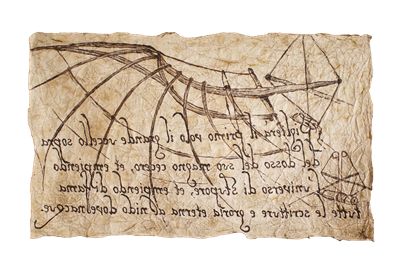 Piglierà il primo volo il grande uccello sopra
del dosso del suo magno cecero, et empiendo
l'universo di stupore, et empiendo di fama
tutte le scritture e groria eterna al nido dove nacque.